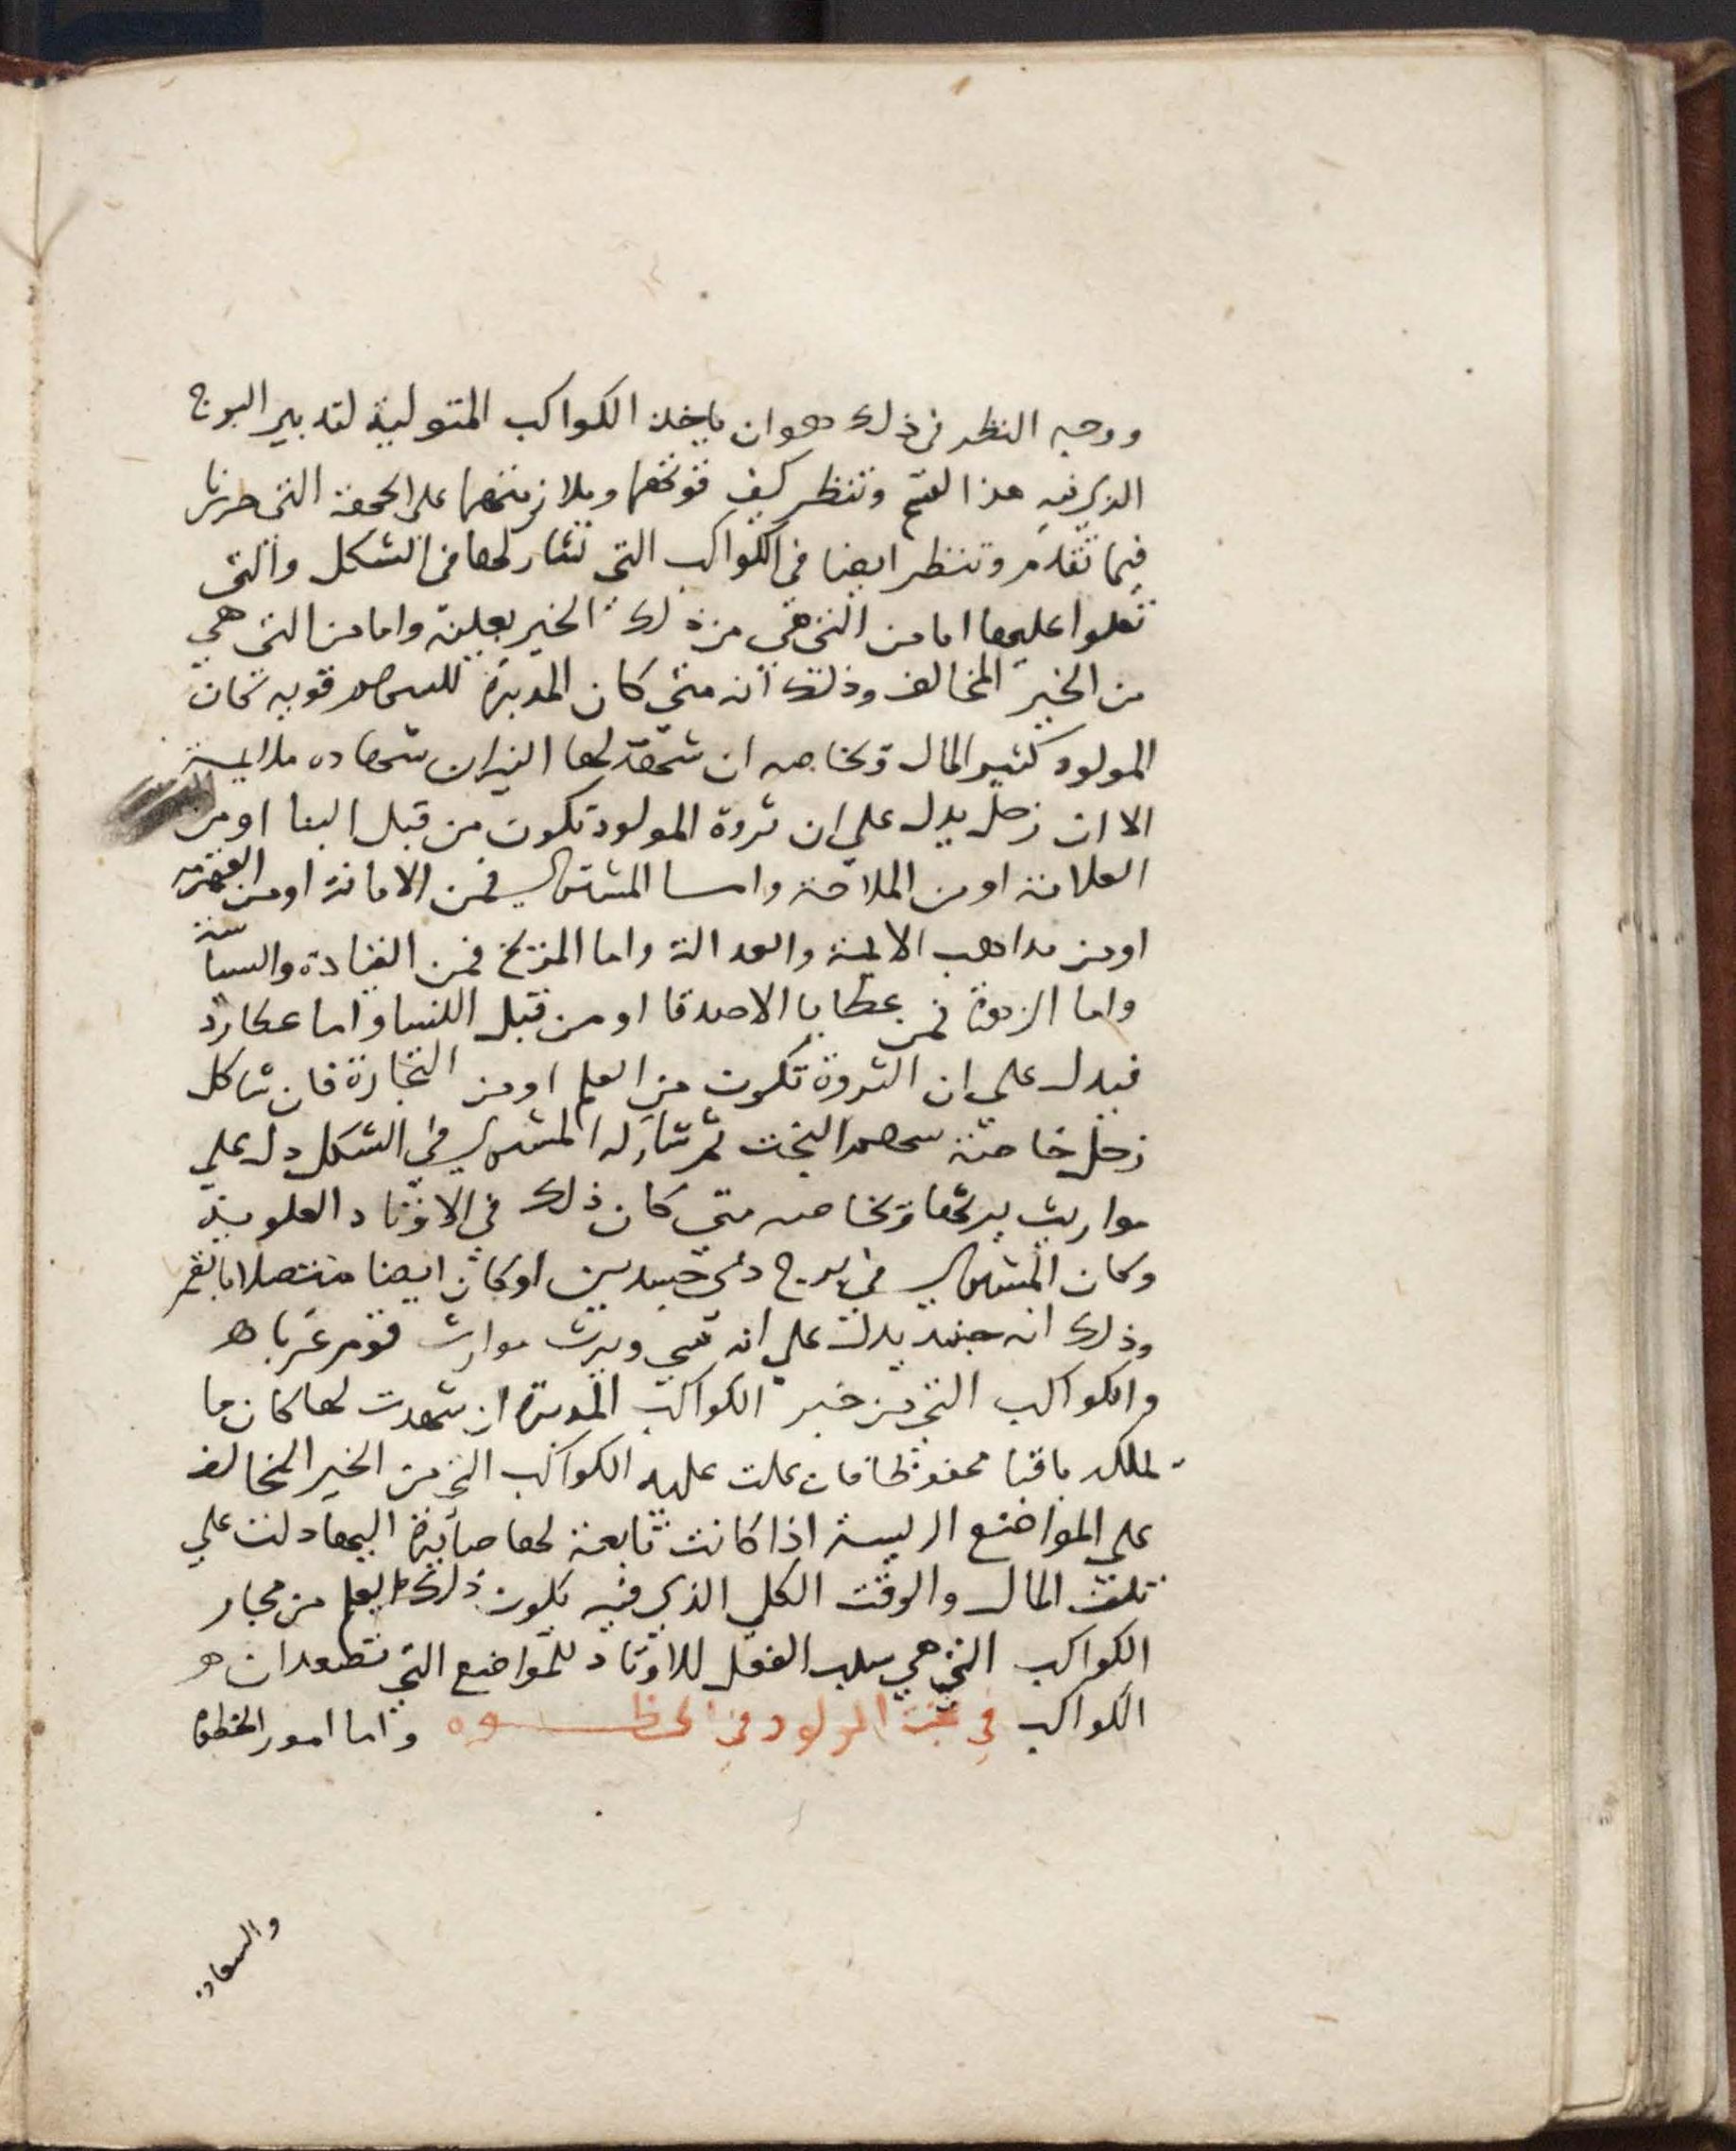 ووجه النظر في ذلك هو ان ياخذ الكواكب المتولية لتدبير البرج
الذي فيه هذا وتنظر كيف قوتها وملازمتها على الجهة التي حررنا
فيما تقدم وتنظر ايضا في الكواكب التي تشاركها في الشكل والتي
تعلوا عليها اما من التي هي من ذلك الخير بعينه واما من التي هي
من الخير المخالف وذلك انه متى كان المدبرة قويه كان
المولود كثير المال وبخاصه ان شهد لها النيران شهاده ملايمة
الا ان زحل يدل علي ان ثروة المولود تكون من قبل البنا او من
الفلاحة او من الملاحة واما المشتري فمن الامانة او من
او من مداهب الايمة والعدالة واما المريخ فمن القيادة والسياسة
واما الزهرة فمن عطايا الاصدقا او من قبل النسا واما عطارد
فيدل على ان الثروة تكون من العلم او من التجارة فان شاكل
زحل خاصة سهم البخت ثم شاركه المشتري في الشكل دل علي
مواريث يرثها وبخاصه متى كان ذلك في الاوتاد العلوية
وكان المشتري في برج ذي جسدين او كان ايضا متصلا بالقمر
وذلك انه حينيد يدل علي انه ويرث موارث قوم غربا ه
والكواكب التي من خير الكواكب المدبرة ان شهدت لها كان ما
يملكه باقيا محفوظا فان علت عليه الكواكب التي من الخير المخالف
على المواضع الرييسة اذا كانت تابعة لها صايرة اليها دلت علي
تلف المال والوقت الكلي الذي فيه يكون ذلك يعلم من مجار
الكواكب التي هي سبب الفعل للاوتاد للمواضع التي تصعد ان ه
الكواكب في بخت المولود في الحظوه واما امور الحظوة
والسعاده